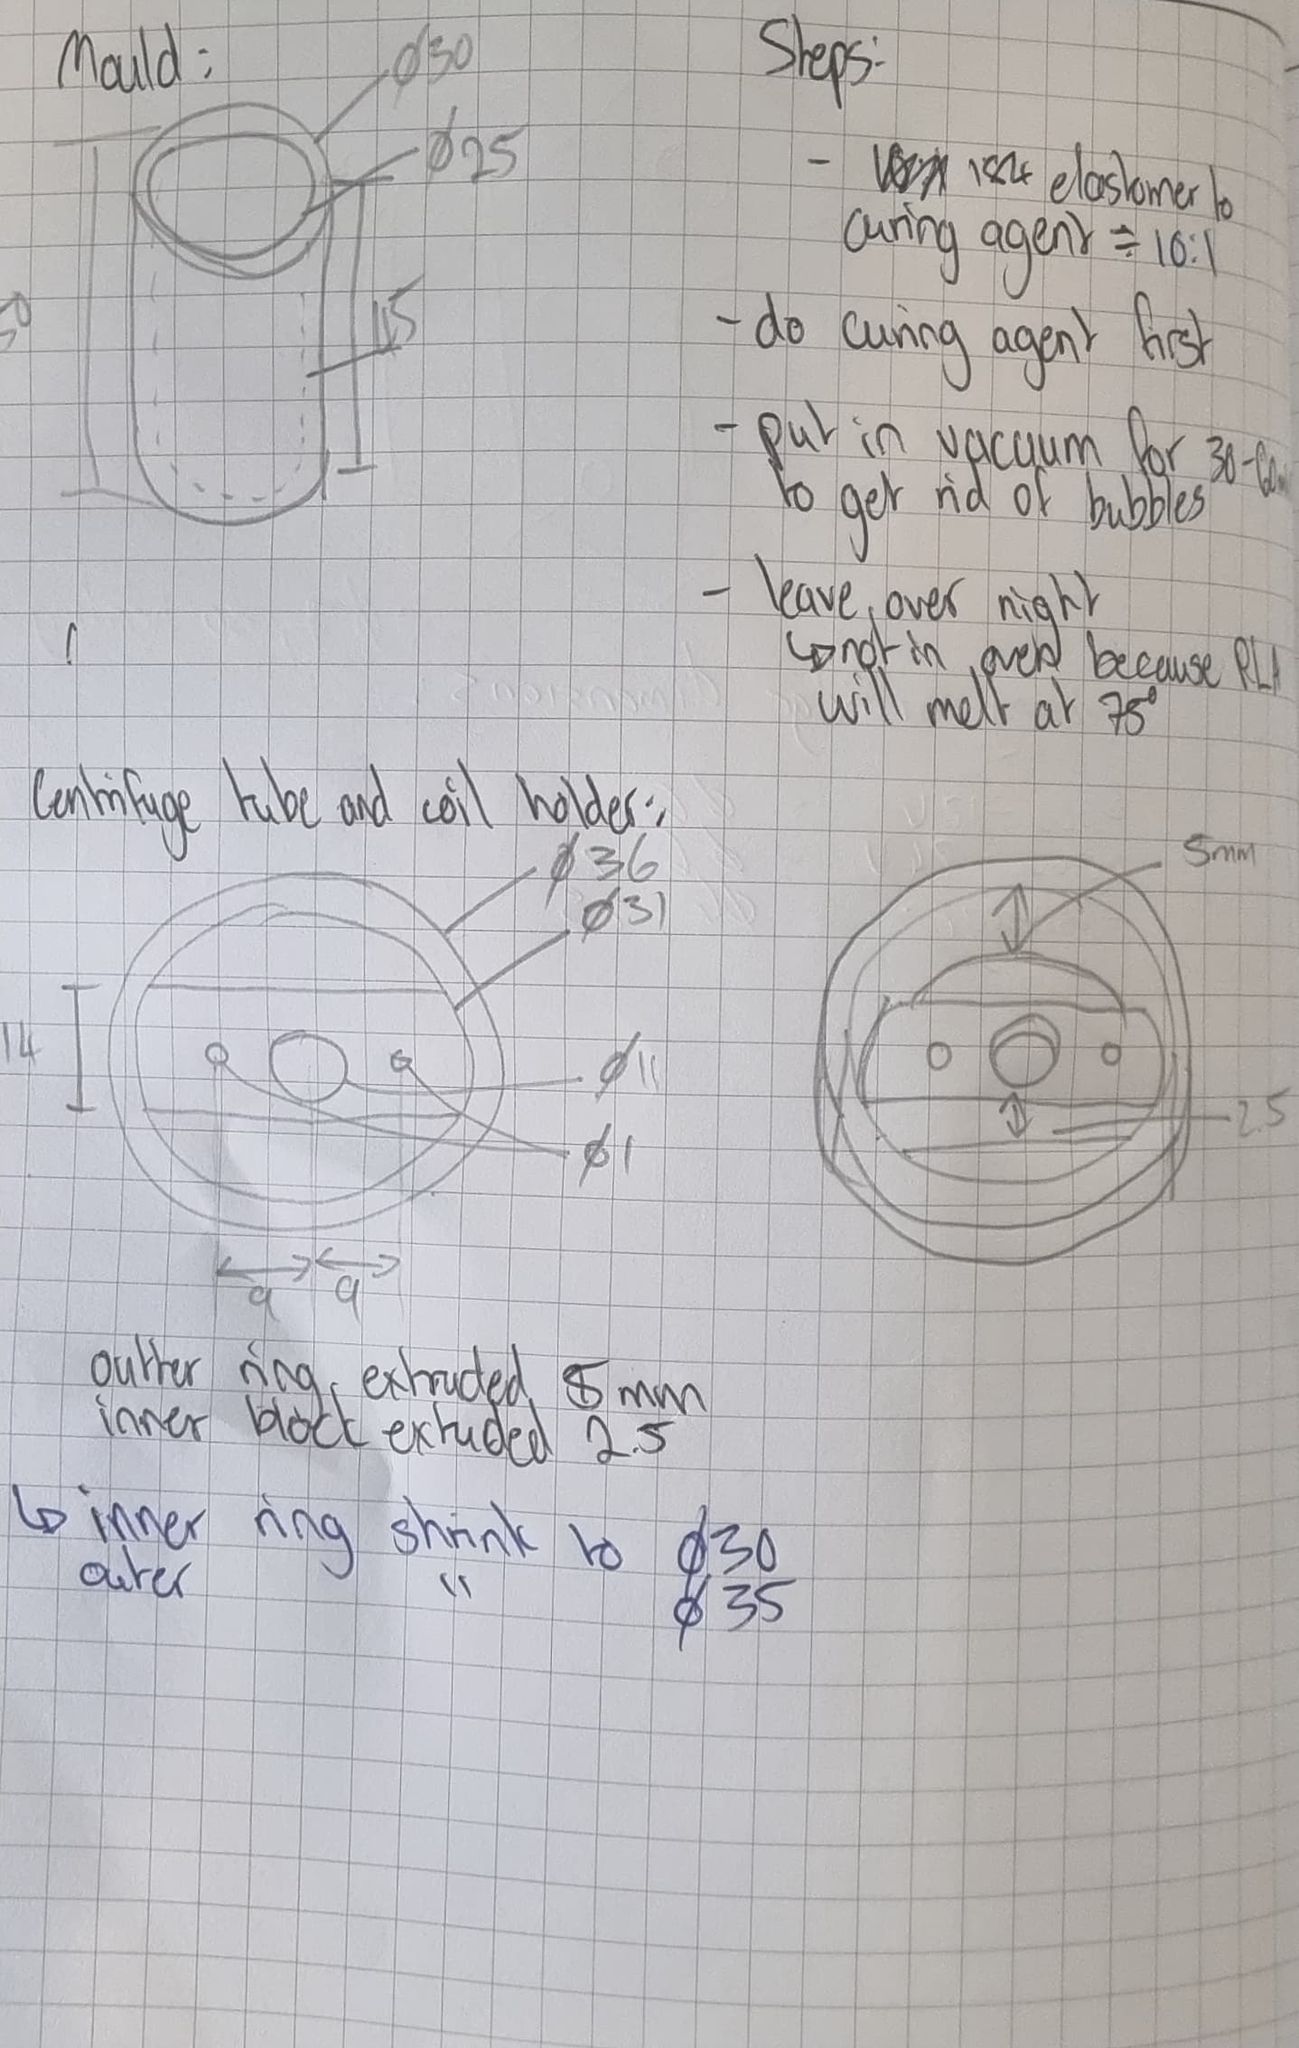 Mould:
ϕ30
ϕ25
45
Steps:
- 184 elastomer to
curing agent = 10:1
- do curing agent first
- put in vacuum for 30-60
to get rid of bubbles
- leave over night
↳ not in oven because PLA
will melt at 75°
Centrifuge tube and coil holder:
ϕ36
ϕ31
14
ϕ11
ϕ1
9 9
5mm
2.5
outter ring extruded 5mm
inner block extuded 2.5
↳ inner ring shrink to ϕ30
outer " ϕ35